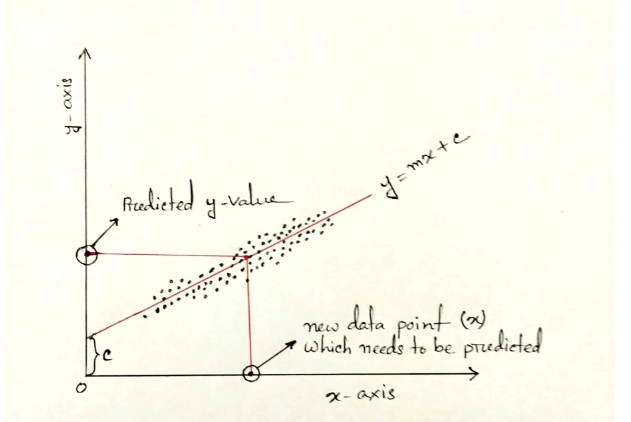 y-axis
y = mx + c
Predicted y-value
new data point (x)
which needs to be predicted
c
0
x-axis